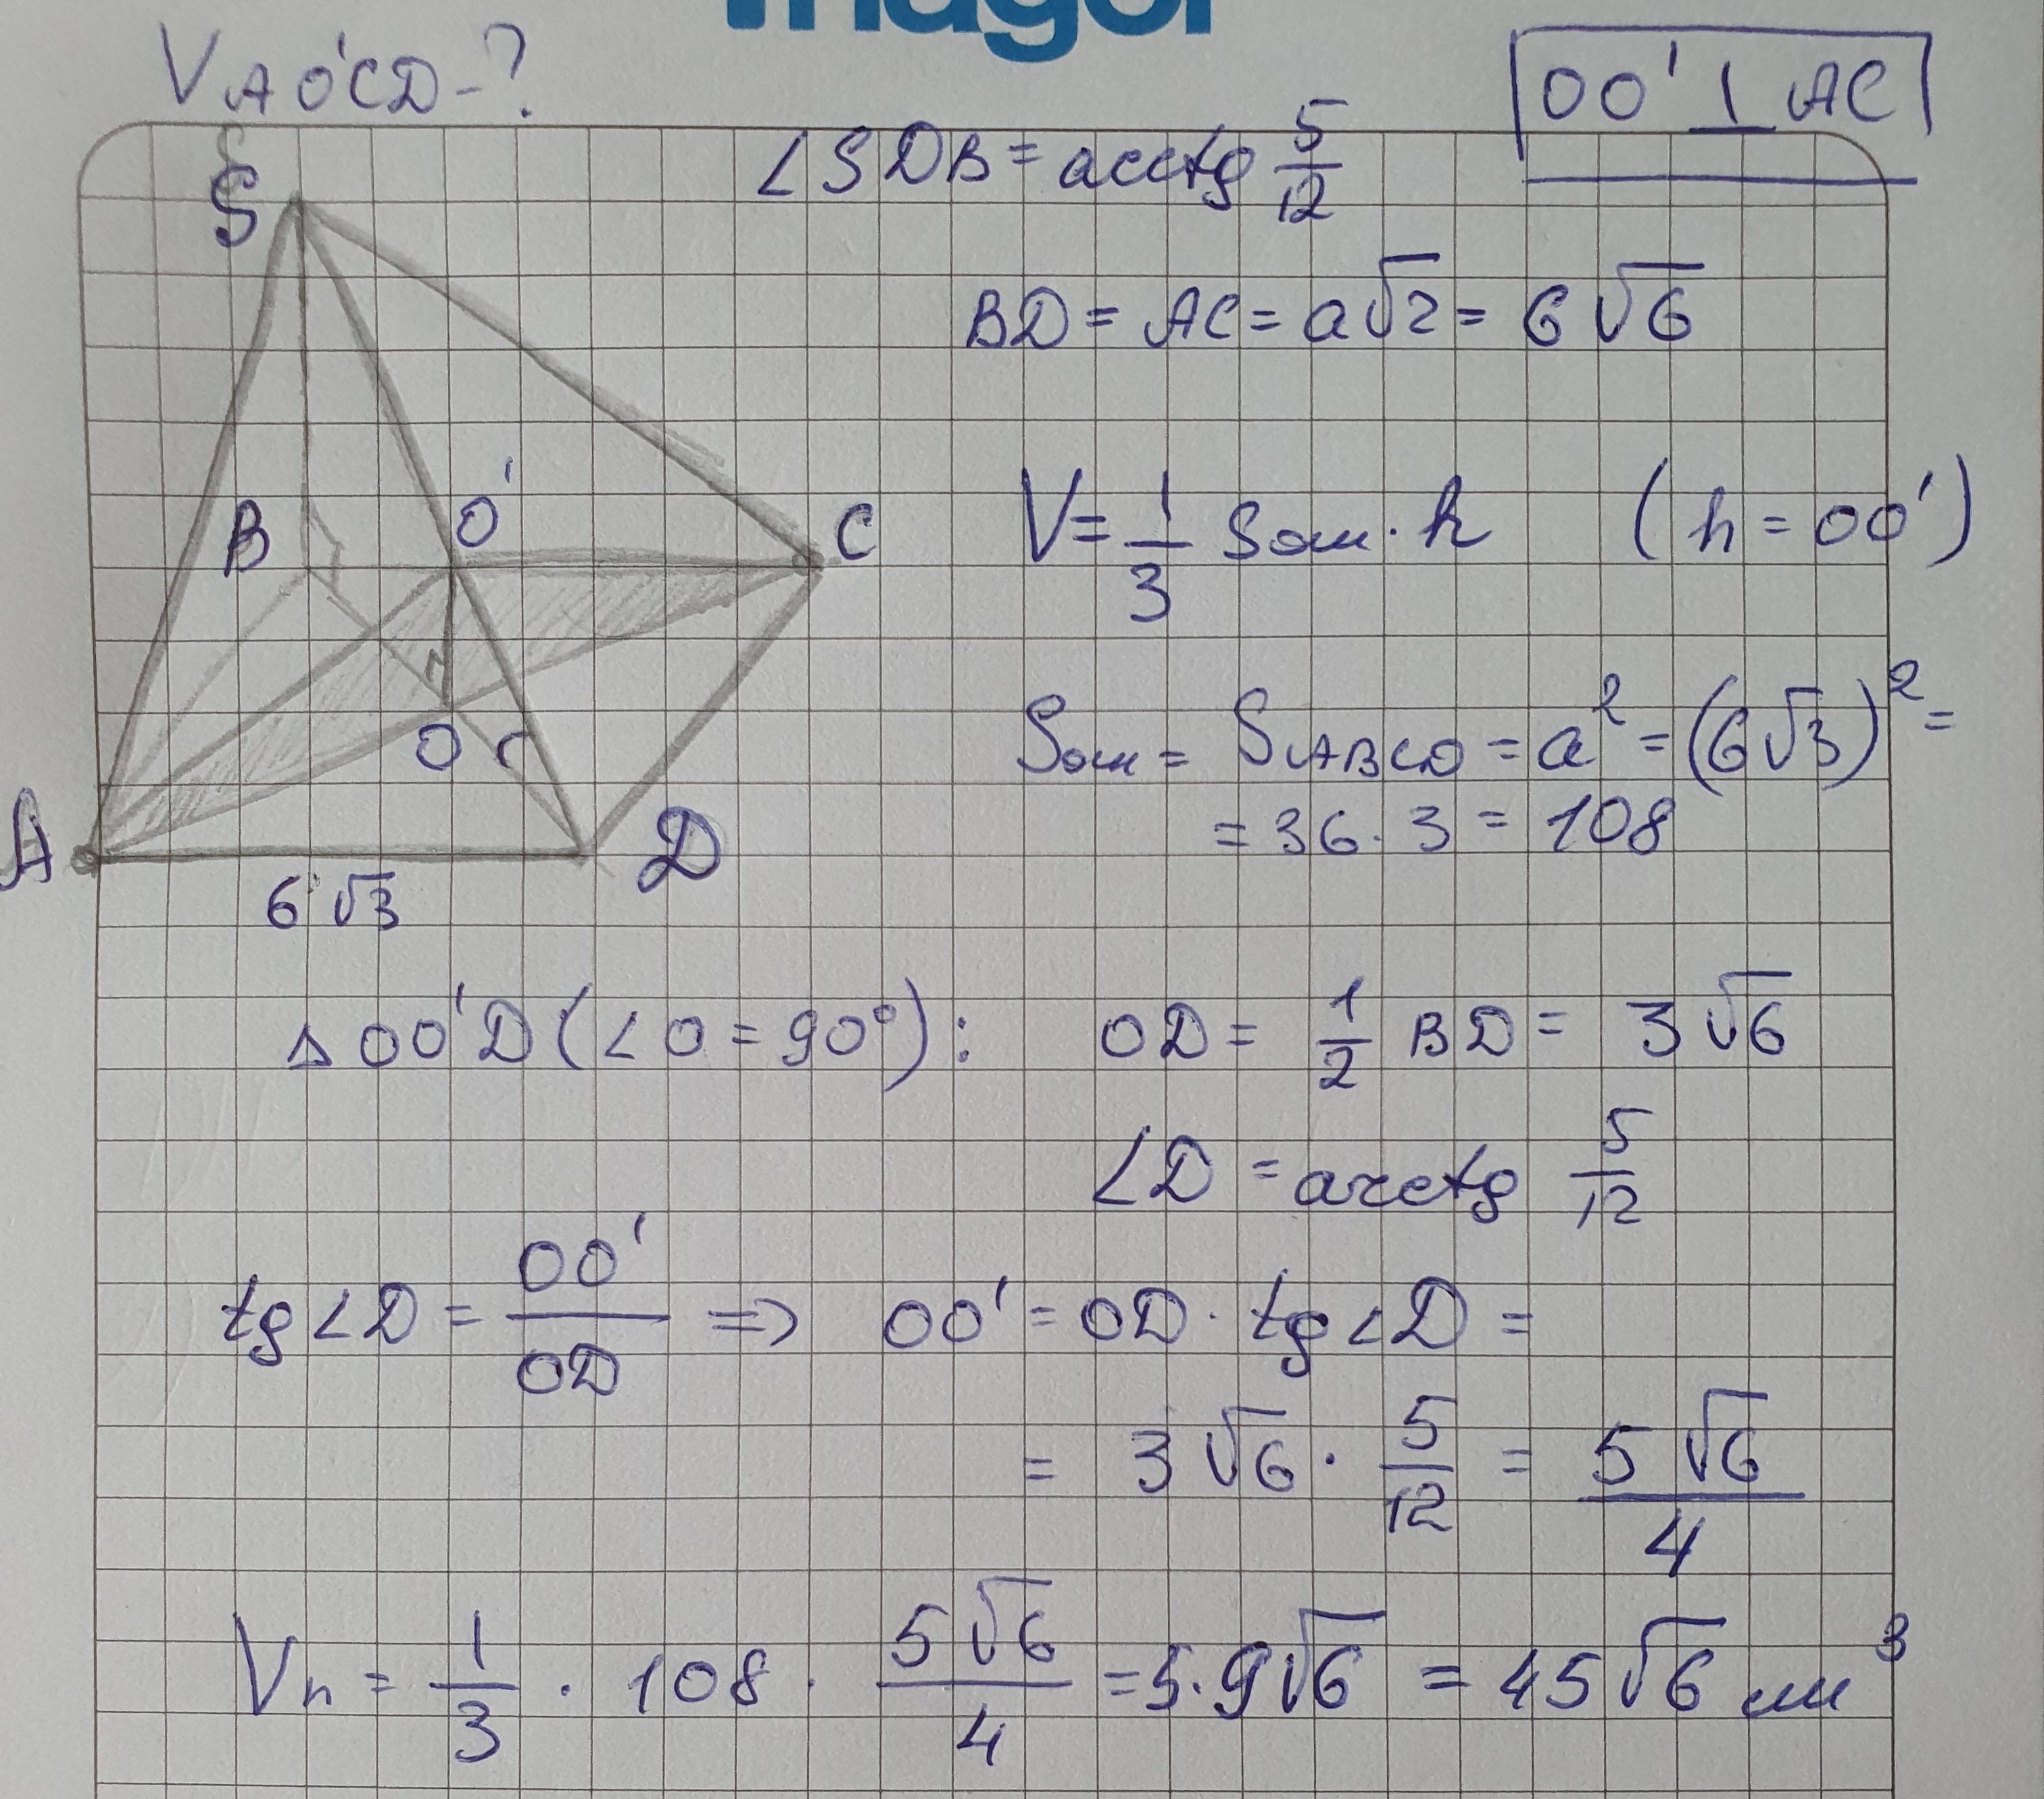 V AO'CD - ?
OO' ⊥ AC
∠SDB = arctg 5/12
S
BD = AC = a√2 = 6√6
B O' C
V = 1/3 Sосн · h (h = OO')
O
Sосн = SABCD = a² = (6√3)² =
= 36 · 3 = 108
A D
6√3
△OO'D (∠O = 90°): OD = 1/2 BD = 3√6
∠D = arctg 5/12
tg∠D = OO'/OD ⇒ OO' = OD · tg∠D =
= 3√6 · 5/12 = 5√6/4
Vп = 1/3 · 108 · 5√6/4 = 5·9√6 = 45√6 см³